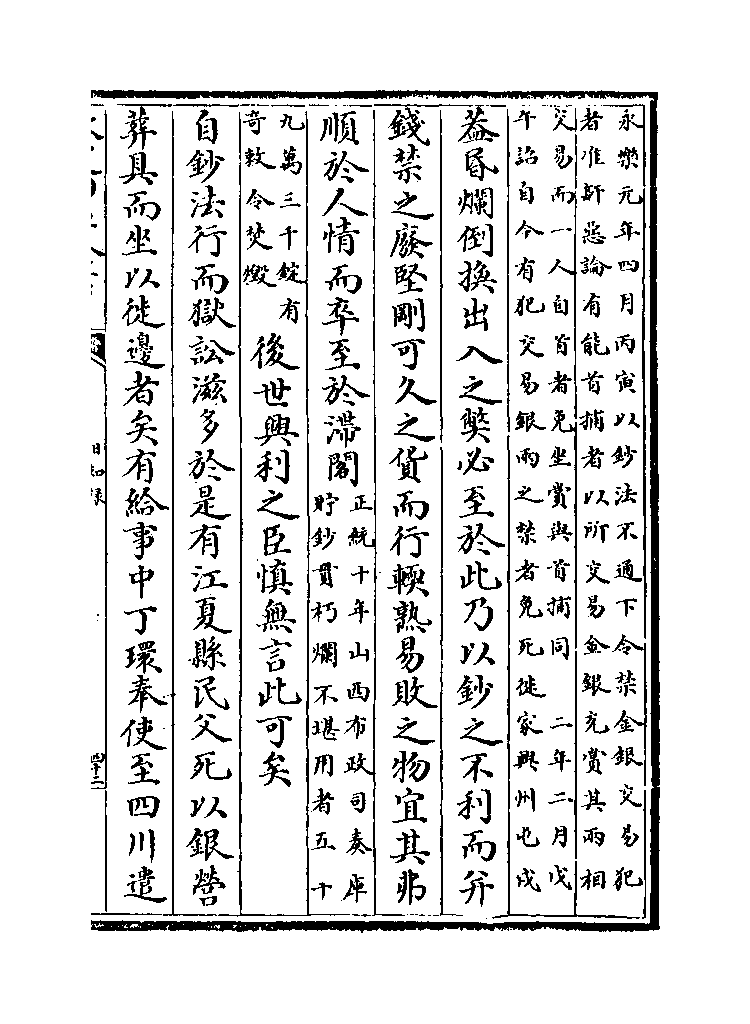 永樂元年四月丙寅以鈔法不通下令禁金銀交易犯
者准奸惡論有能首捕者以所交易金銀充賞其兩相
交易而一人自首者免坐賞與首捕同　二年二月戊
午詔自今有犯交易銀兩之禁者免死徙家興州屯戍
葢昏爛倒換出入之弊必至於此乃以鈔之不利而并
錢禁之廢堅剛可久之貨而行輭熟易敗之物宜其弗
順於人情而卒至於滯閣
正統十年山西布政司奏庫
貯鈔貫朽爛不堪用者五十
九萬三千錠有
奇敕令焚燬
後世興利之臣慎無言此可矣
自鈔法行而獄訟滋多於是有江夏縣民父死以銀營
葬具而坐以徙邊者矣有給事中丁環奉使至四川遣
日知錄